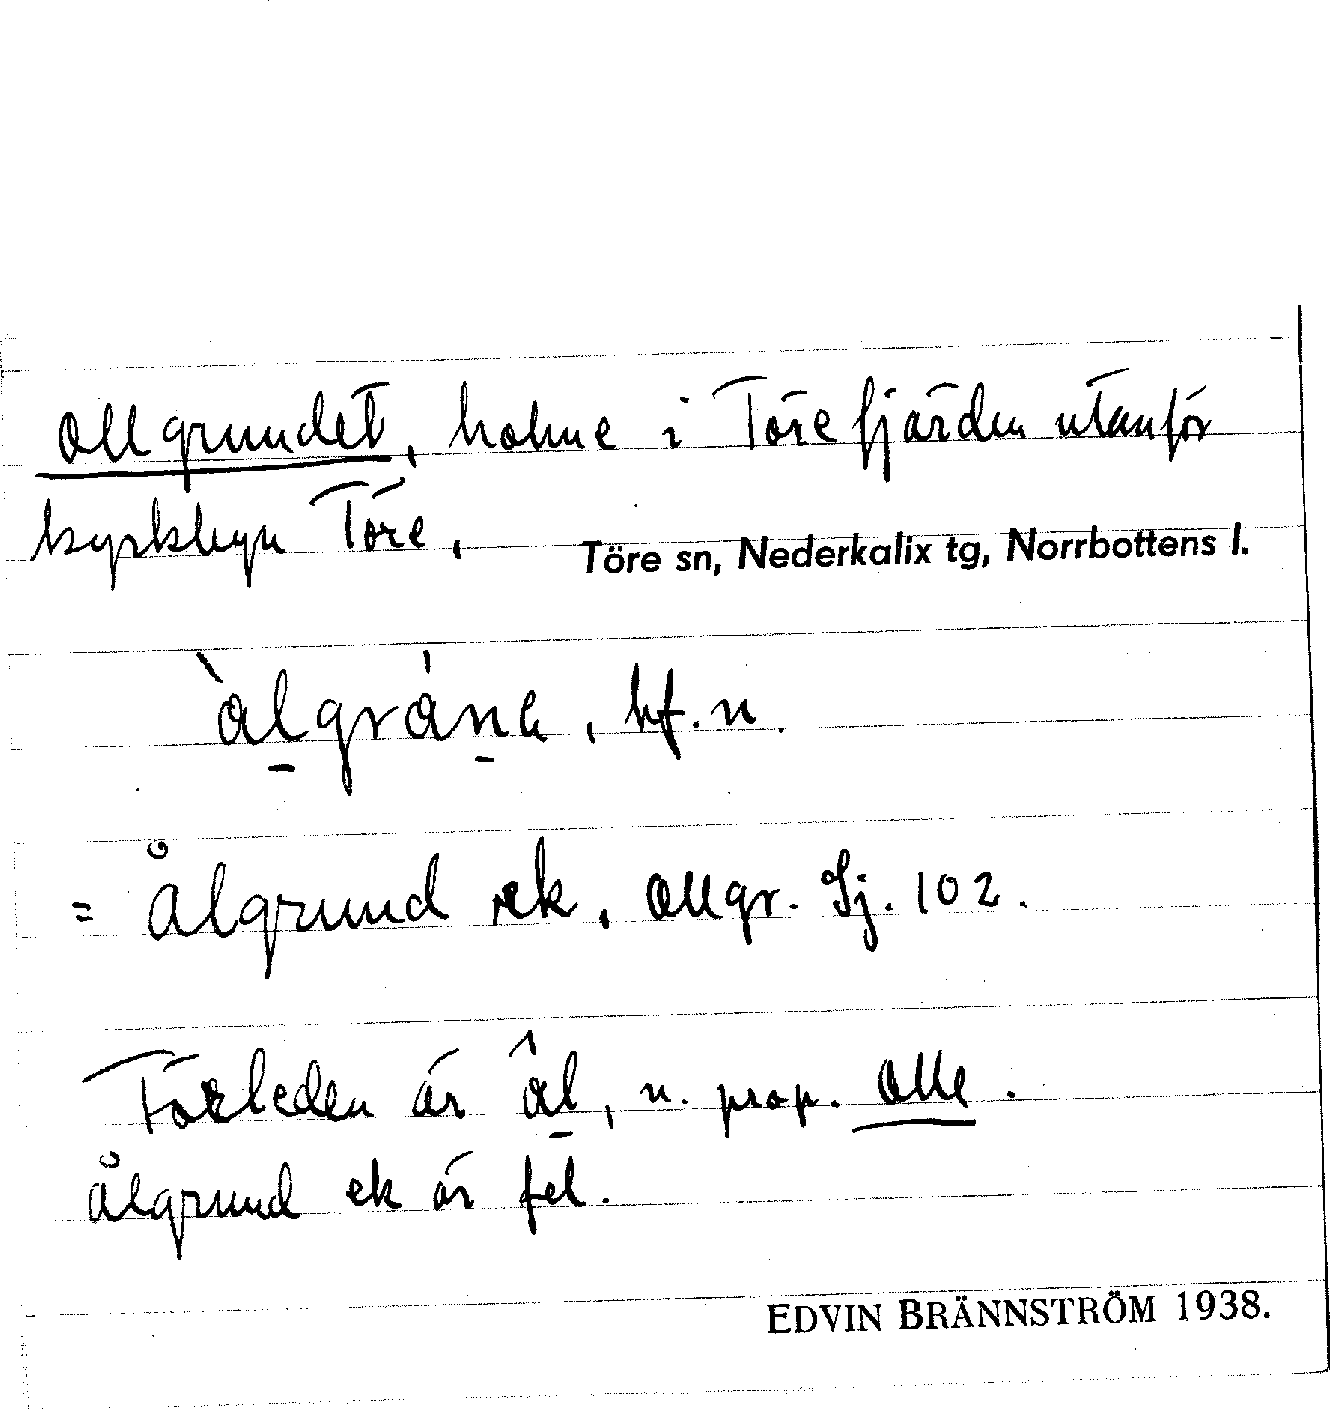 Ollgrundet, holme i Törefjärden utanför
kyrkbyn Töre.
Töre sn, Nederkalix tg, Norrbottens l.
àlgránɐ, bf.n.
= Ålgrund ek, Ollgr. Sj. 102.
Förleden är âl, n. prop. Olle.
Ålgrund ek är fel.
EDVIN BRÄNNSTRÖM 1938.